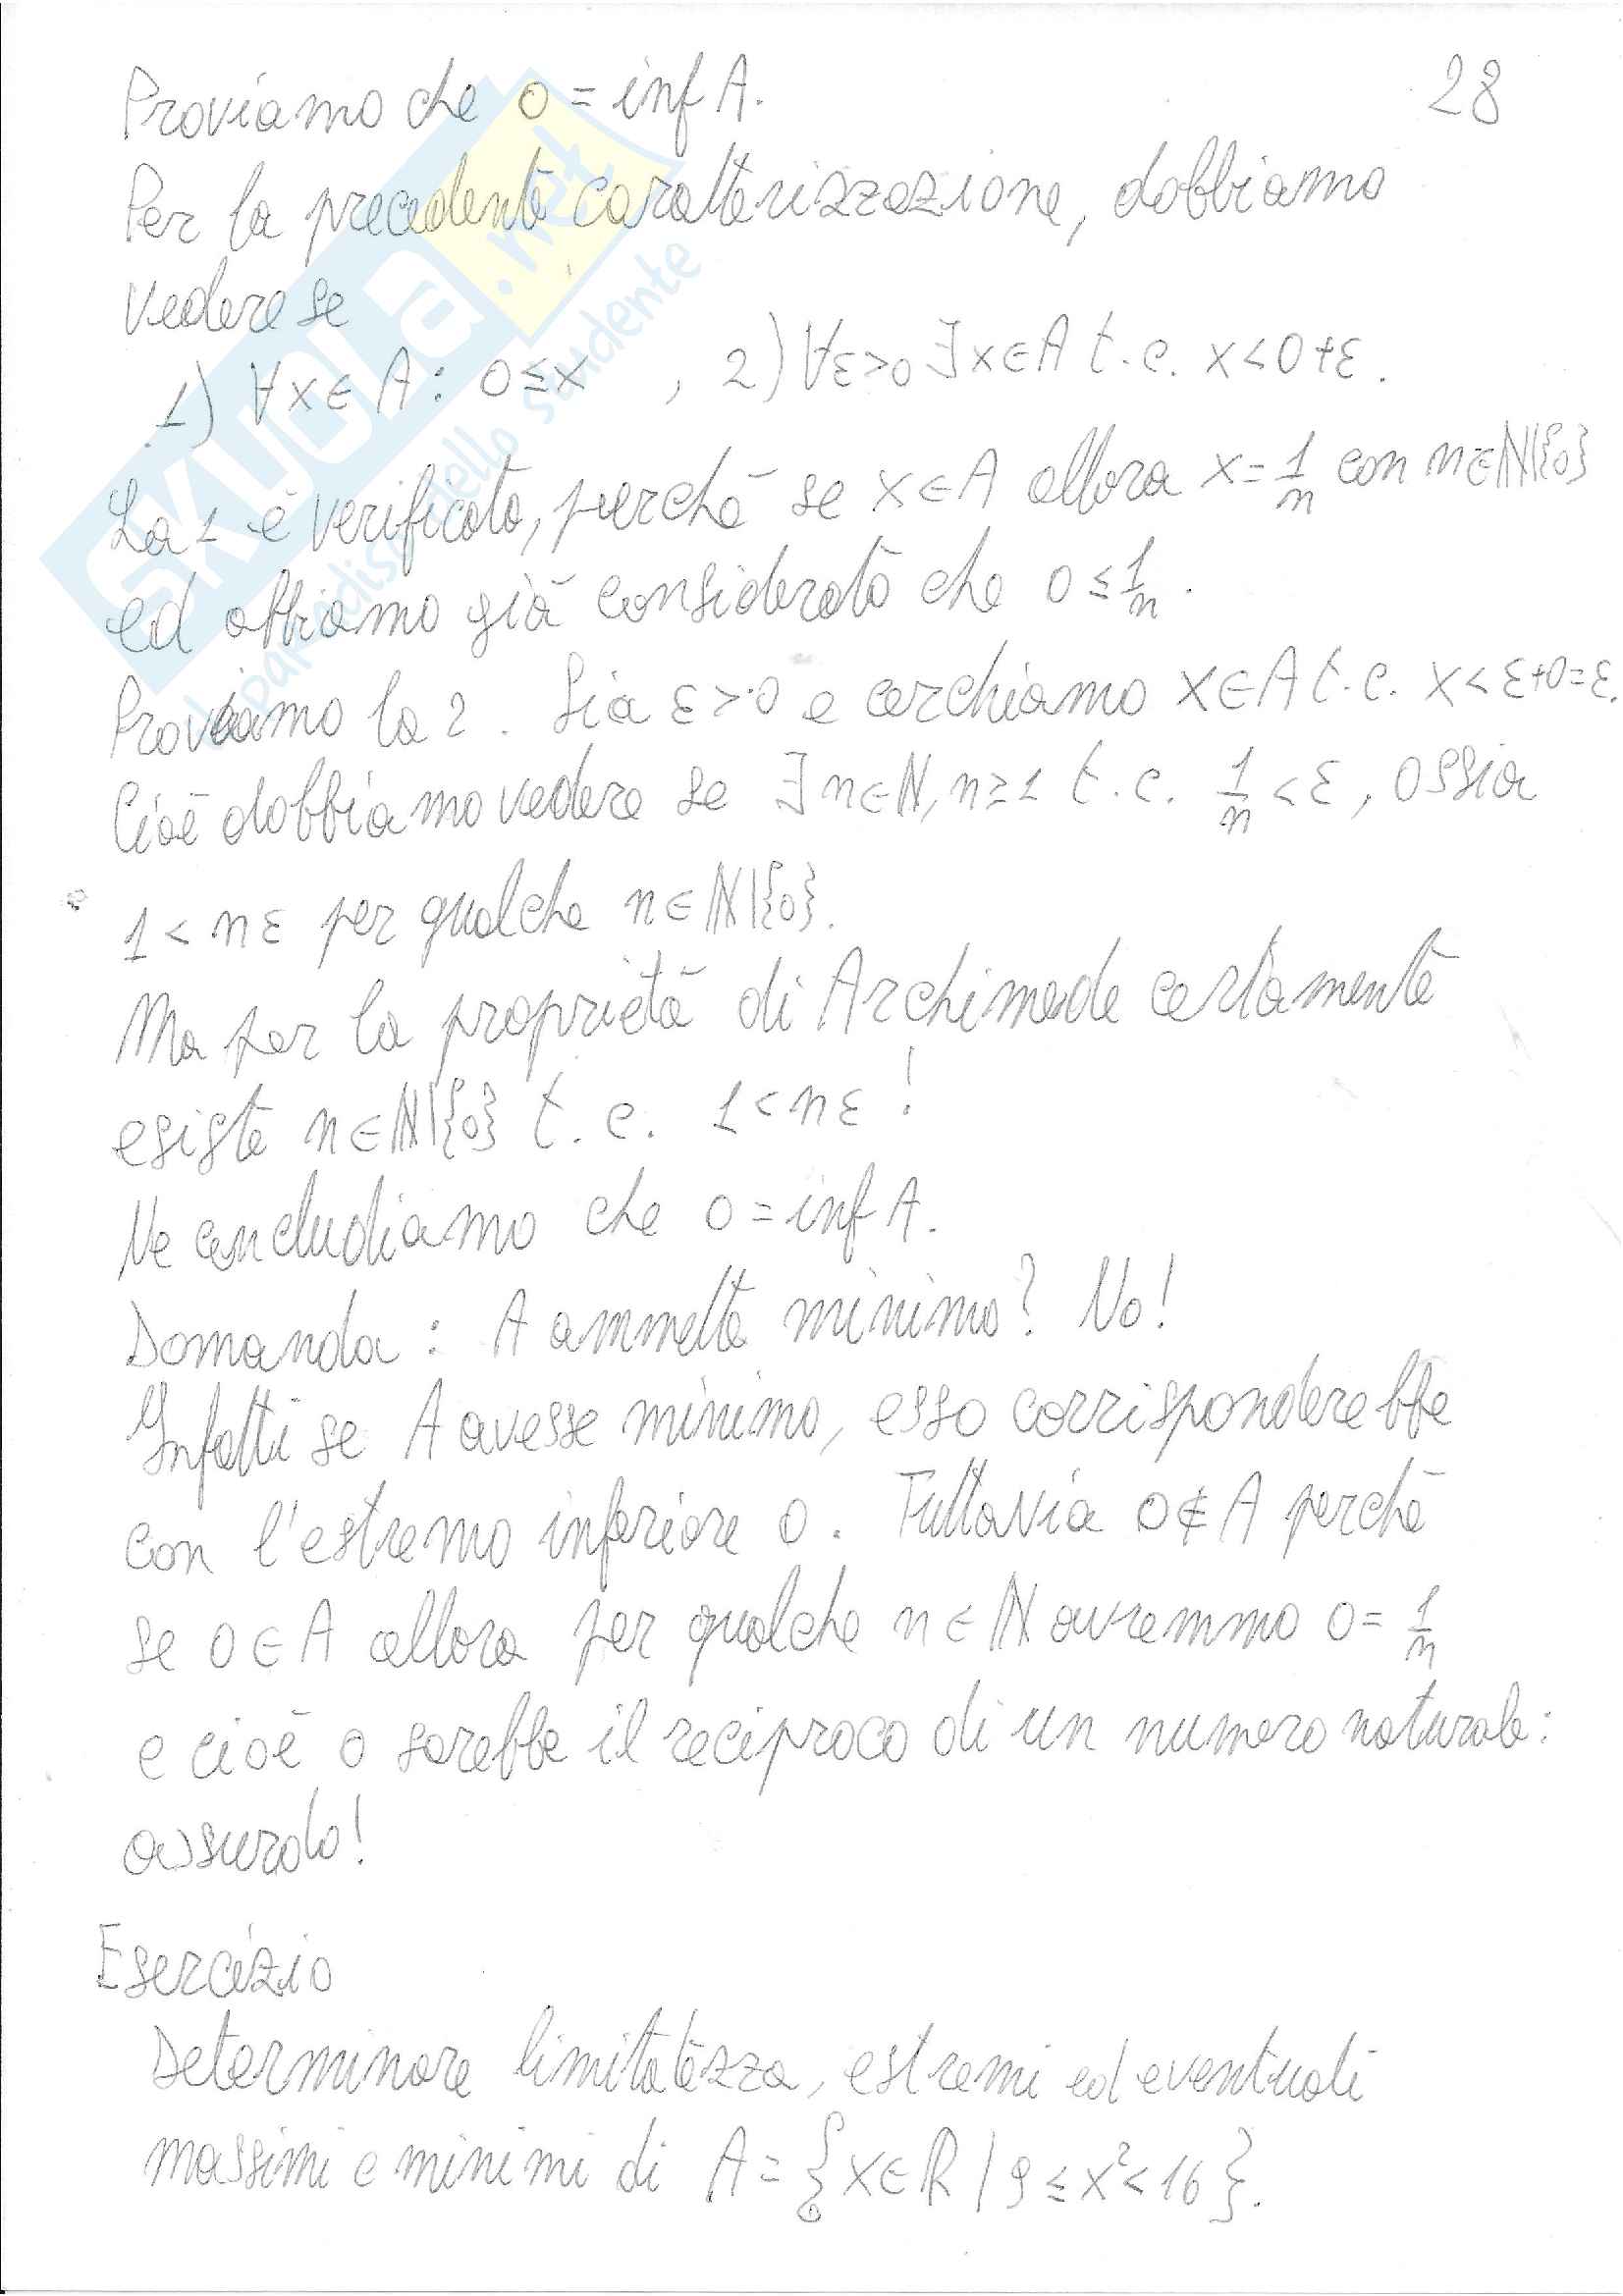 28
Proviamo che 0 = inf A.
Per la precedente caratterizzazione, dobbiamo
vedere se
1) ∀x∈A: 0≤x , 2) ∀ε>0 ∃x∈A t.c. x<0+ε.
La 1 è verificata, perché se x∈A allora x=1/n con n∈ℕ\{0}
ed abbiamo già considerato che 0≤1/n.
Proviamo la 2. Sia ε>0 e cerchiamo x∈A t.c. x<ε+0=ε.
Cioè dobbiamo vedere se ∃n∈ℕ, n≥1 t.c. 1/n<ε, ossia
1<nε per qualche n∈ℕ\{0}.
Ma per la proprietà di Archimede certamente
esiste n∈ℕ\{0} t.c. 1<nε!
Ne concludiamo che 0=inf A.
Domanda: A ammette minimo? No!
Infatti se A avesse minimo, esso corrisponderebbe
con l'estremo inferiore 0. Tuttavia 0∉A perché
se 0∈A allora per qualche n∈ℕ avremmo 0=1/n
e cioè 0 sarebbe il reciproco di un numero naturale:
assurdo!
Esercizio
Determinare limitatezza, estremi ed eventuali
massimi e minimi di A={x∈ℝ | 9≤x²<16}.
SKUOLA.net
il paradiso dello studente